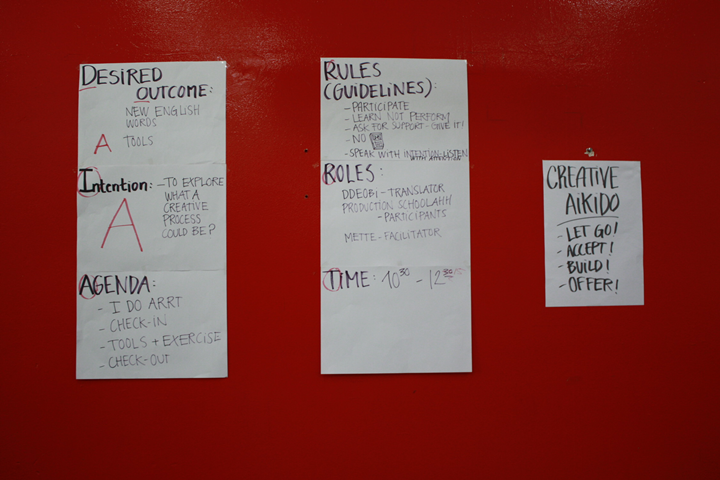 DESIRED
OUTCOME:
NEW ENGLISH
WORDS
A TOOLS
Intention: - TO EXPLORE
WHAT A
CREATIVE
PROCESS
COULD BE?
A
AGENDA:
- I DO ARRT
- CHECK-IN
- TOOLS + EXERCISE
- CHECK-OUT
RULES
(GUIDELINES):
- PARTICIPATE
- LEARN NOT PERFORM
- ASK FOR SUPPORT - GIVE IT!
- NO
- SPEAK WITH INTENTION-LISTEN
WITH ATTENTION
ROLES:
DDEOBI - TRANSLATOR
PRODUCTION SCHOOLAHH
- PARTICIPANTS
METTE - FACILITATOR
TIME: 10 30 - 12 30
CREATIVE
AIKIDO
- LET GO!
- ACCEPT!
- BUILD!
- OFFER!